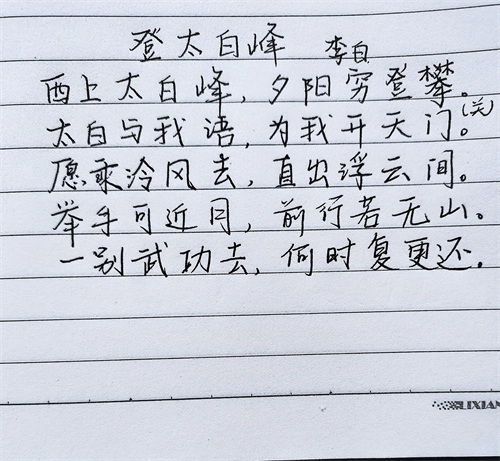 登太白峰 李白
西上太白峰，夕阳穷登攀。
太白与我语，为我开天门。(关)
愿乘泠风去，直出浮云间。
举手可近月，前行若无山。
一别武功去，何时复更还。
LIXIAN